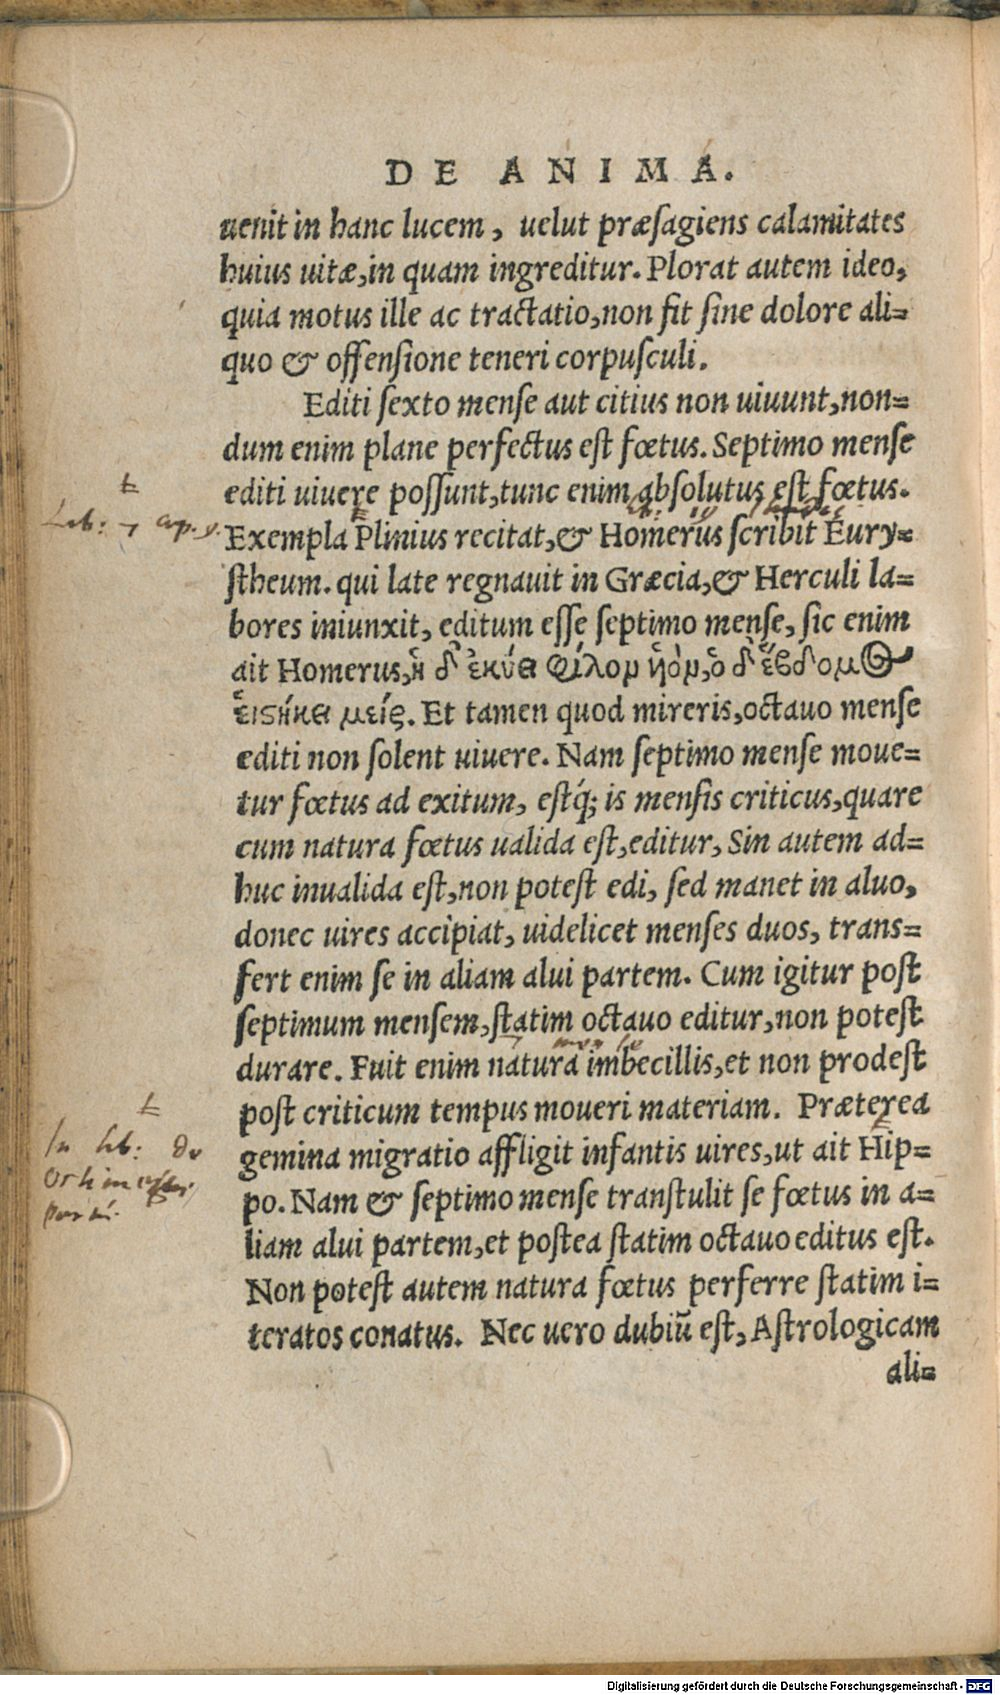 DE ANIMA.
uenit in hanc lucem, uelut præsagiens calamitates
huius uitæ, in quam ingreditur. Plorat autem ideo,
quia motus ille ac tractatio, non fit sine dolore ali=
quo & offensione teneri corpusculi.
Editi sexto mense aut citius non uiuunt, non=
dum enim plane perfectus est fœtus. Septimo mense
editi uiuere possunt, tunc enim absolutus est fœtus.
Lib: 7 cap. 5.
Exempla Plinius recitat, & Homerus scribit Eury=
stheum. qui late regnauit in Græcia, & Herculi la=
bores iniunxit, editum esse septimo mense, sic enim
ait Homerus, ἡ δ' ἐκύει φίλον ὑὸν, ὁ δ' ἕβδομος
ἑιστήκει μείς. Et tamen quod mireris, octauo mense
editi non solent uiuere. Nam septimo mense moue=
tur fœtus ad exitum, estq́; is mensis criticus, quare
cum natura fœtus ualida est, editur, Sin autem ad=
huc inualida est, non potest edi, sed manet in aluo,
donec uires accipiat, uidelicet menses duos, trans=
fert enim se in aliam alui partem. Cum igitur post
septimum mensem, statim octauo editur, non potest
durare. Fuit enim natura imbecillis, et non prodest
post criticum tempus moueri materiam. Præterea
In lib: de
gemina migratio affligit infantis uires, ut ait Hip=
po. Nam & septimo mense transtulit se fœtus in a=
liam alui partem, et postea statim octauo editus est.
Non potest autem natura fœtus perferre statim i=
teratos conatus. Nec uero dubiũ est, Astrologicam
ali=
Digitalisierung gefördert durch die Deutsche Forschungsgemeinschaft - DFG